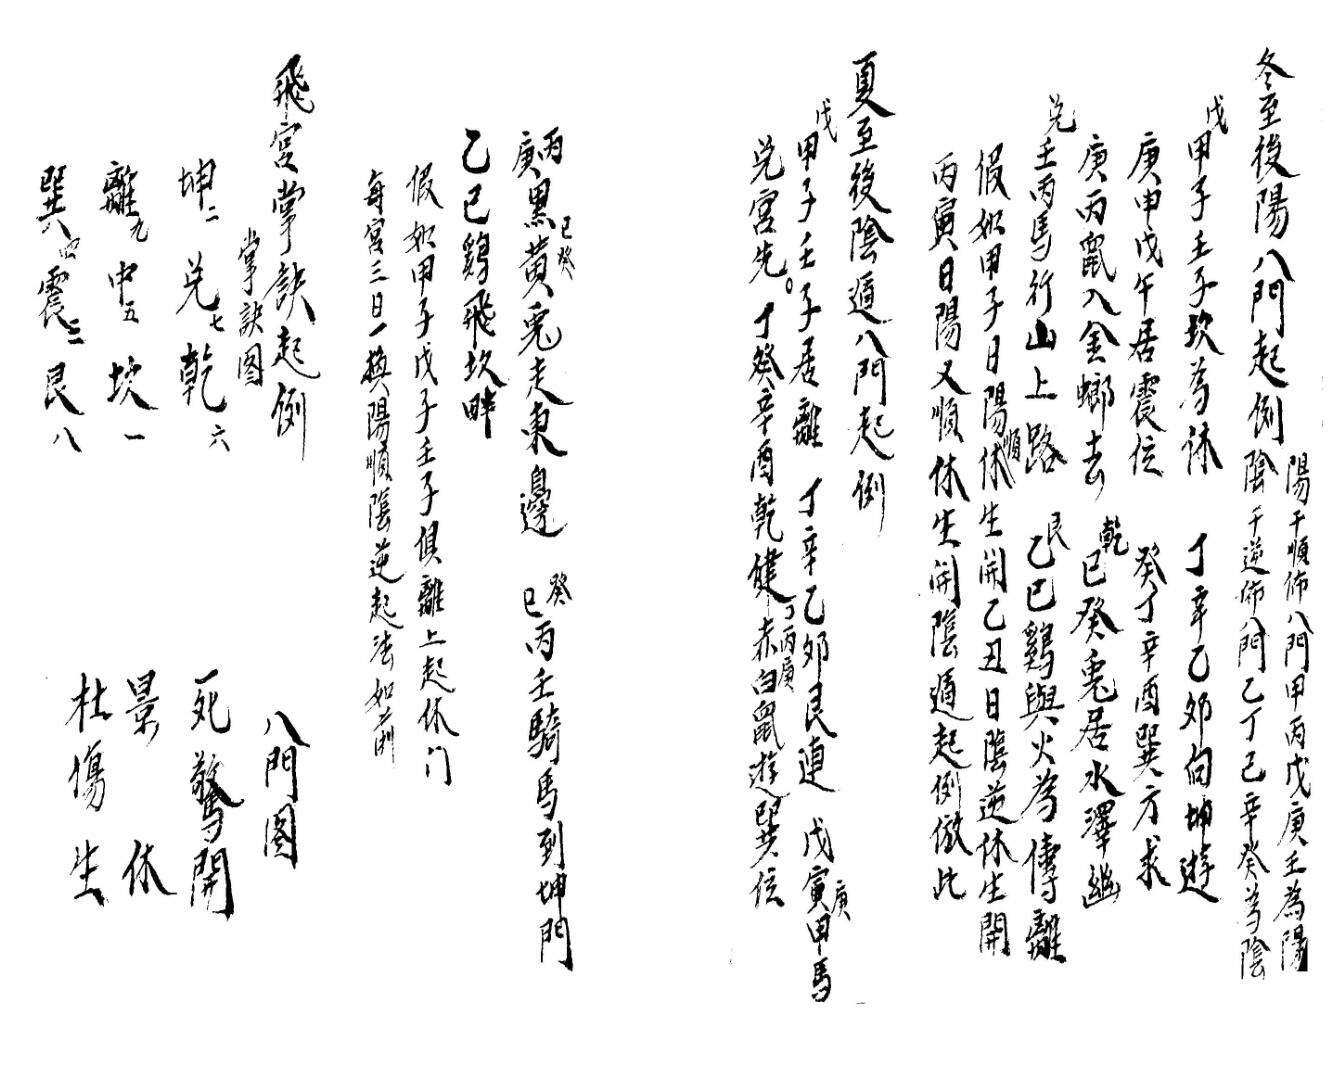 冬至後陽八門起例
陽干順佈八門甲丙戊庚壬為陽
陰干逆佈八門乙丁己辛癸為陰
戊
甲子壬子坎為休 丁辛乙卯向坤遊
庚申戊午居震位 癸丁辛酉巽方求
庚丙鼠入金鄉去 乾己癸兎居水澤
兌
壬丙馬行山上路 艮乙巳鷄與火為傳離
假如甲子日陽順休生開乙丑日陰逆休生開
丙寅日陽又順休生開陰遁起例倣此
夏至後陰遁八門起例
戊
甲子壬子居離 丁辛乙卯艮連 戊寅庚甲馬
兌宮先丁癸辛酉乾健 丁丙庚赤白鼠遊巽位
丙庚黑黃兎走東邊 癸己丙壬騎馬到坤門
己癸
乙巳鷄飛坎畔
假如甲子戊子壬子俱離上起休门
每宮三日一換陽順陰逆起法如前
飛宮掌訣起例
掌訣图
坤二 兌七 乾六
離九 中五 坎一
巽四 震三 艮八
八門图
死驚開
景 休
杜傷生